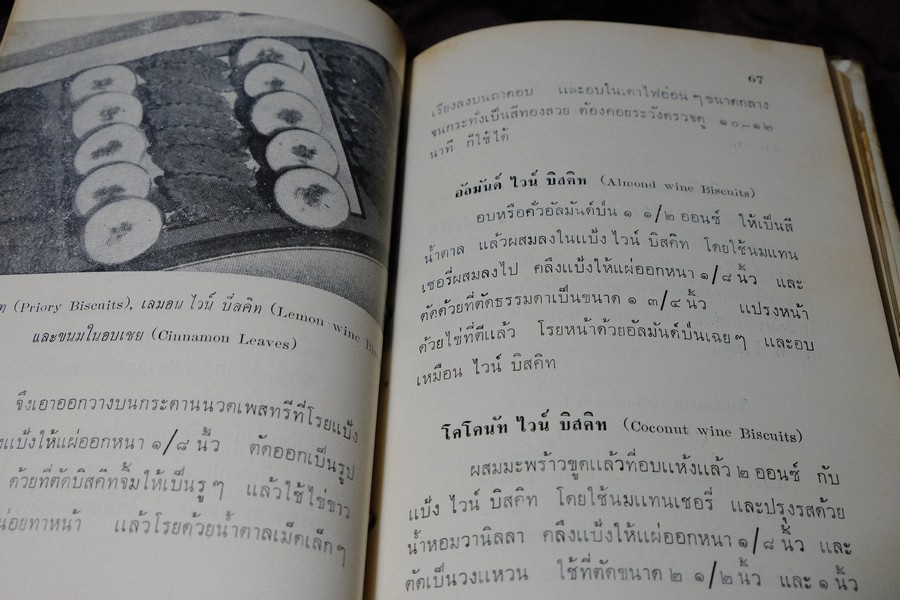 ท (Priory Biscuits), เลมอน ไวน์ บิสคิท (Lemon wine
และขนมใบอบเชย (Cinnamon Leaves)
จึงเอาออกวางบนกระดานนวดเพสทรีที่โรยแป้ง
แป้งให้แผ่ออกหนา ๑/๘ นิ้ว ตัดออกเป็นรูป
ด้วยที่ตัดบิสคิทจิ้มให้เป็นรู ๆ แล้วใช้ไข่ขาว
น่อยทาหน้า แล้วโรยด้วยน้ำตาลเม็ดเล็ก ๆ
67
เรียงลงบนถาดอบ และอบในเตาไฟอ่อน ๆ ขนาดกลาง
จนกระทั่งเป็นสีทองสวย ต้องคอยระวังตรวจดู ๑๐-๑๒
นาที ก็ใช้ได้
อัลมันด์ ไวน์ บิสคิท (Almond wine Biscuits)
อบหรือคั่วอัลมันด์ป่น ๑ ๑/๒ ออนซ์ ให้เป็นสี
น้ำตาล แล้วผสมลงในแป้ง ไวน์ บิสคิท โดยใช้นมแทน
เชอรี่ผสมลงไป คลึงแป้งให้แผ่ออกหนา ๑/๘ นิ้ว และ
ตัดด้วยที่ตัดธรรมดาเป็นขนาด ๑ ๓/๔ นิ้ว แปรงหน้า
ด้วยไข่ที่ตีแล้ว โรยหน้าด้วยอัลมันด์ป่นเฉย ๆ และอบ
เหมือน ไวน์ บิสคิท
โคโคนัท ไวน์ บิสคิท (Coconut wine Biscuits)
ผสมมะพร้าวขูดแล้วที่อบแห้งแล้ว ๒ ออนซ์ กับ
แป้ง ไวน์ บิสคิท โดยใช้นมแทนเชอรี่ และปรุงรสด้วย
น้ำหอมวานิลลา คลึงแป้งให้แผ่ออกหนา ๑/๘ นิ้ว และ
ตัดเป็นวงแหวน ใช้ที่ตัดขนาด ๒ ๑/๒ นิ้ว และ ๑ นิ้ว